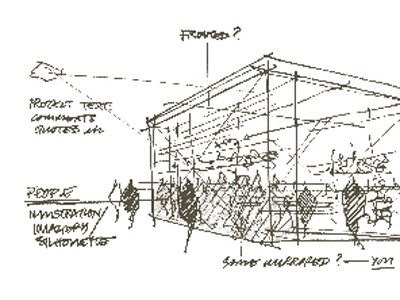 FROSTED?
PROJECT TEXT:
COMMENTS
QUOTES
PEOPLE
ILLUSTRATION/
IMAGERY
SILHOUETTE
SOME MIRRORED? — YOU